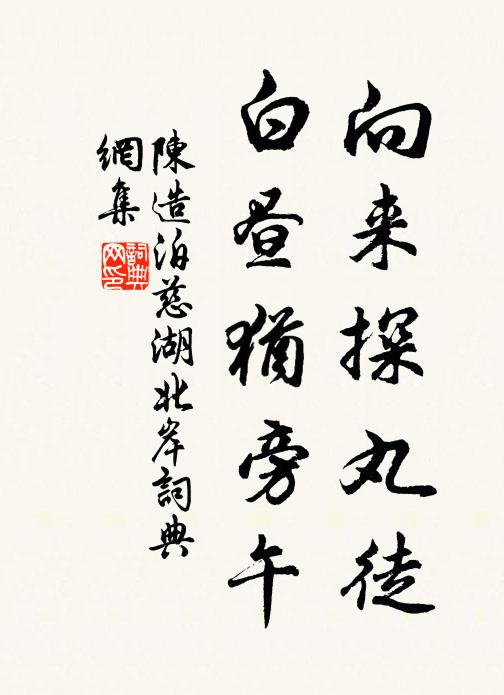 向来探丸徒
白昼犹旁午
陳造泊慈湖北岸詞典
網集
詞典
网印